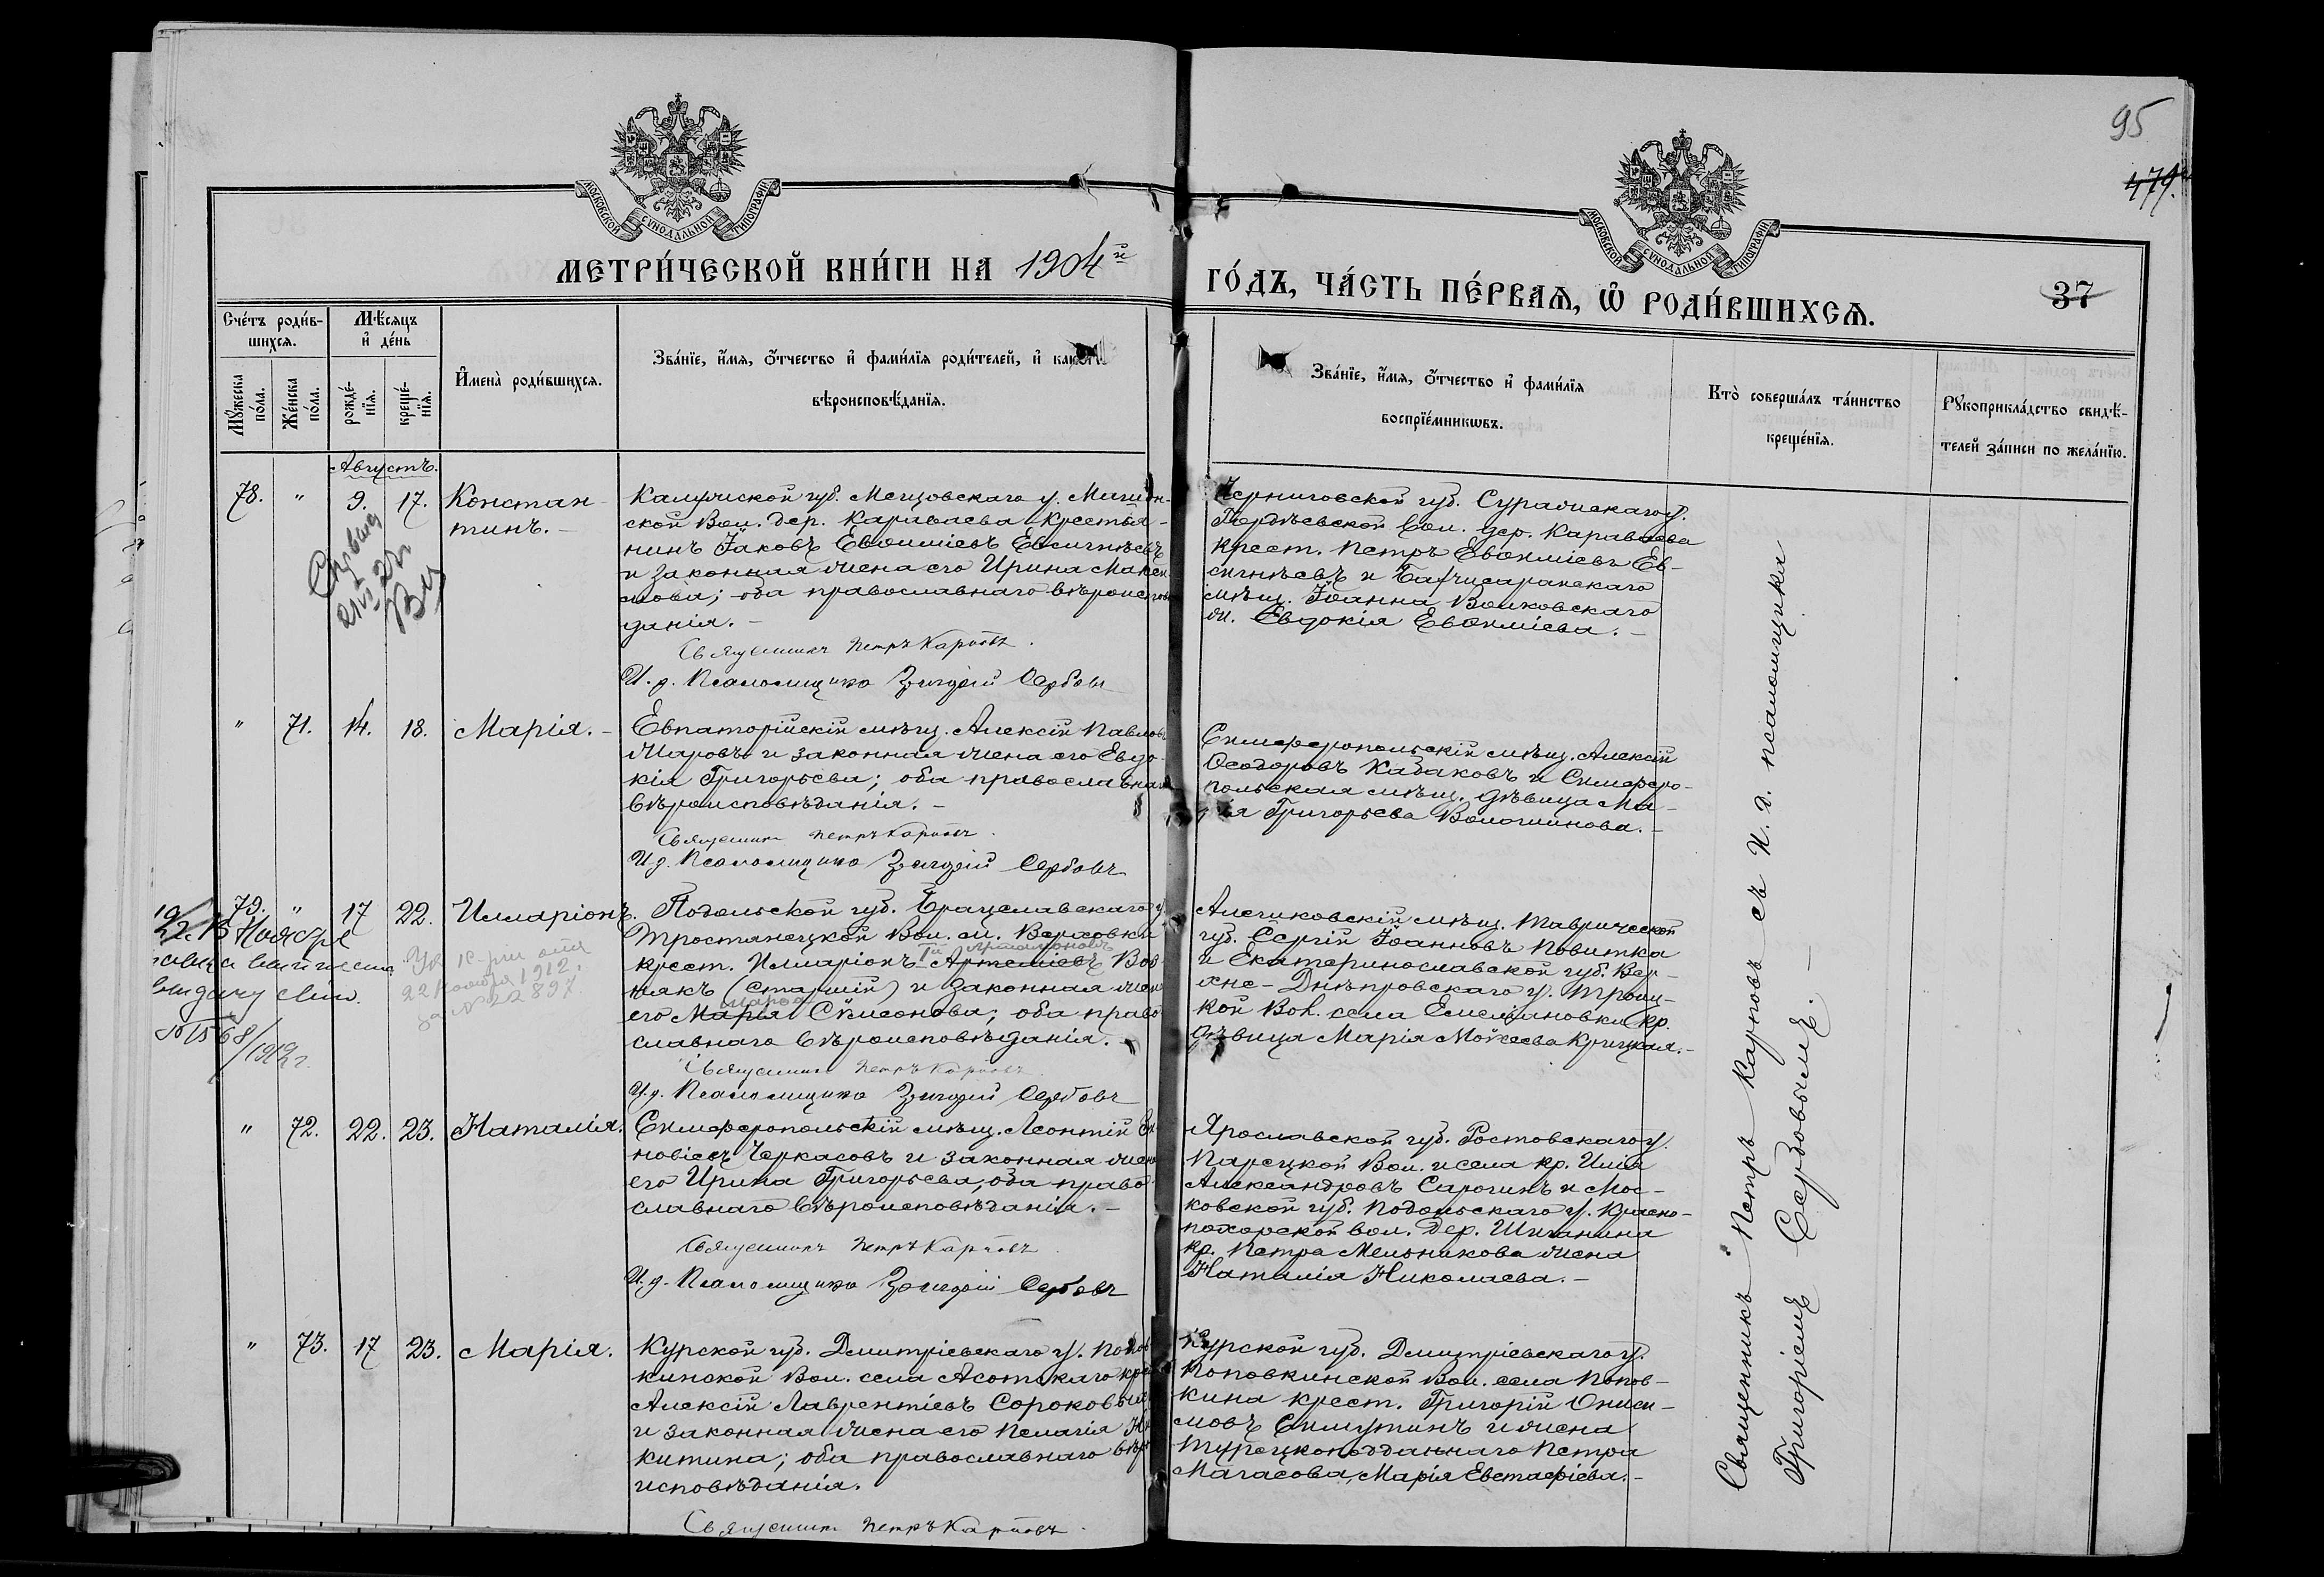 95
479.
МОСКОВСКОЙ СУНОДАЛЬНОЙ ТИПОГРАФІИ
МОСКОВСКОЙ СУНОДАЛЬНОЙ ТИПОГРАФІИ
МЕТРИ́ЧЕСКОЙ КНИ́ГИ НА 1904й
ГО́ДЪ, ЧА́СТЬ ПЕ́РВАЯ, Ѡ РОДИ́ВШИХСЯ.
37
Сче́тъ роди́в-
шихся.
Мѣ́сяцъ
и де́нь
Мꙋжеска
по́ла.
Же́нска
по́ла.
рожде́-
нїя.
креще́-
нїя.
Имена̀ роди́вшихся.
Зва́нїе, и́мя, о́тчество и фами́лїя роди́телей, и како́гѡ
вѣроисповѣ́данїя.
Зва́нїе, и́мя, о́тчество и фами́лїя
воспрїе́мникѡвъ.
Кто̀ соверша́лъ та́инство
креще́нїя.
Рꙋкоприкла́дство свидѣ́-
телей за́писи по жела́нїю.
Августъ.
78. " 9. 17. Констан-
тинъ. -
Калужской губ. Мещовскаго у.
ской Вол. дер. Караваева крестья-
нинъ Іаковъ Евѳиміевъ Евсигнѣевъ
и законная жена его Ирина Макси-
мова; оба православнаго вѣроиспо
данія. -
Священникъ Петръ Карповъ.
И. д. Псаломщика Григорій Сербовъ
Черниговской губ. Суражскаго у.
Вол. дер. Караваева
крест. Петръ Евѳиміевъ Ев-
сигнѣевъ и Бахчисарайскаго
мѣщ. Іоанна Волковскаго
ж. Евдокія Евѳиміева. -
" 71. 14. 18. Марія. -
Евпаторійскій мѣщ. Алексій Павловъ
Жаровъ и законная жена его Евдо-
кія Григорьева; оба православнаго
вѣроисповѣданія. -
Священникъ Петръ Карповъ.
И. д. Псаломщика Григорій Сербовъ
Симферопольскій мѣщ. Алексій
Ѳеодоровъ Кабаковъ и Симферо-
польская мѣщ. дѣвица Ма-
рія Григорьева Волошинова. -
79. " 17 22. Илларіонъ.
Подольской губ. Брацлавскаго у.
Тростянецкой Вол. м. Верховки
Артамоновъ
крест. Илларіонъ Артеміевъ Воз-
някъ (старшій) и законная жена
его Марія Сѵмеонова; оба право-
славнаго вѣроисповѣданія.
Священникъ Петръ Карповъ
И. д. Псаломщика Григорій Сербовъ
22 Ноября 1912.
за № 22897.
№ 1568/1912 г.
Алешковскій мѣщ. Таврической
губ. Сергій Іоанновъ Повитка
и Екатеринославской губ. Вер-
хне-Днѣпровскаго у. Троиц-
кой Вол. села Емельяновки кр.
дѣвица Марія Мойсеева Крицкая. -
" 72. 22. 23. Наталія.
Симферопольскій мѣщ. Леонтій
новіевъ Черкасовъ и законная жена
его Ирина Григорьева; оба право-
славнаго вѣроисповѣданія. -
Священникъ Петръ Карповъ.
И. д. Псаломщика Григорій Сербовъ
Ярославской губ. Ростовскаго у.
Вол. и села кр. Илья
Александровъ Сарогинъ и Мос-
ковской губ. Подольскаго у. Красно-
пахорской вол. дер. Шиганина
кр. Петра Мельникова жена
Наталія Николаева. -
" 73. 17 23. Марія.
Курской губ. Димитріевскаго у. Попов
кинской Вол. села Асотскаго крест
Алексій Лаврентіевъ Сороковыхъ
и законная жена его Пелагія Ни
китина; оба православнаго вѣро
исповѣданія.
Священникъ Петръ Карповъ.
Курской губ. Димитріевскаго у.
Поповкинской Вол. села Попов-
кина крест. Григорій Ониси-
мовъ Симутинъ и жена
турецкоподданнаго Петра
Магасова, Марія Евстафіева. -
Священникъ Петръ Карповъ съ И. д. псаломщика
Григоріемъ Сербовымъ. -